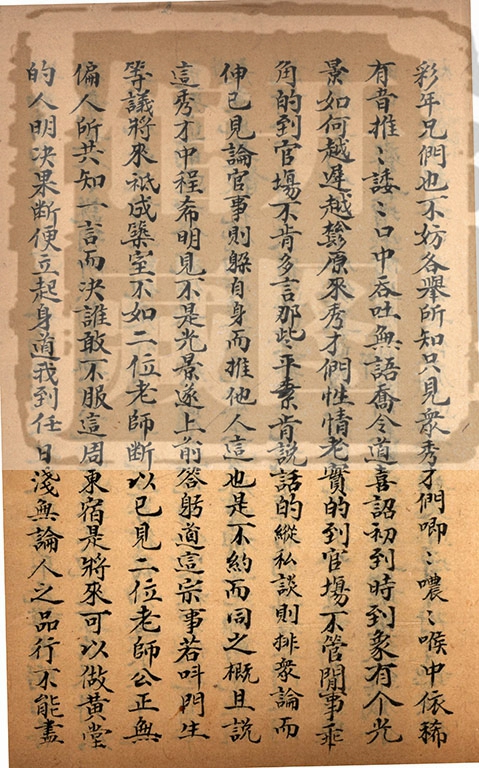 彩年兄們也不妨各舉所知只見衆秀才們唧〻噥〻喉中依稀
有音推〻諉〻口中吞吐無語喬令道喜詔初到時到象有个光
景如何越遲越鬆原來秀才們性情老實的到官場不管閒事乖
角的到官場不肯多言那些平素肯說話的縱私談則排衆論而
伸已見論官事則躱自身而推他人這也是不約而同之概且說
這秀才中程希明見不是光景遂上前答躬道這宗事若呌門生
等議將來祗成築室不如二位老師斷以已見二位老師公正無
偏人所共知一言而决誰敢不服這周東宿是將來可以做黃堂
的人明决果斷便立起身道我到任日淺無論人之品行不能盡